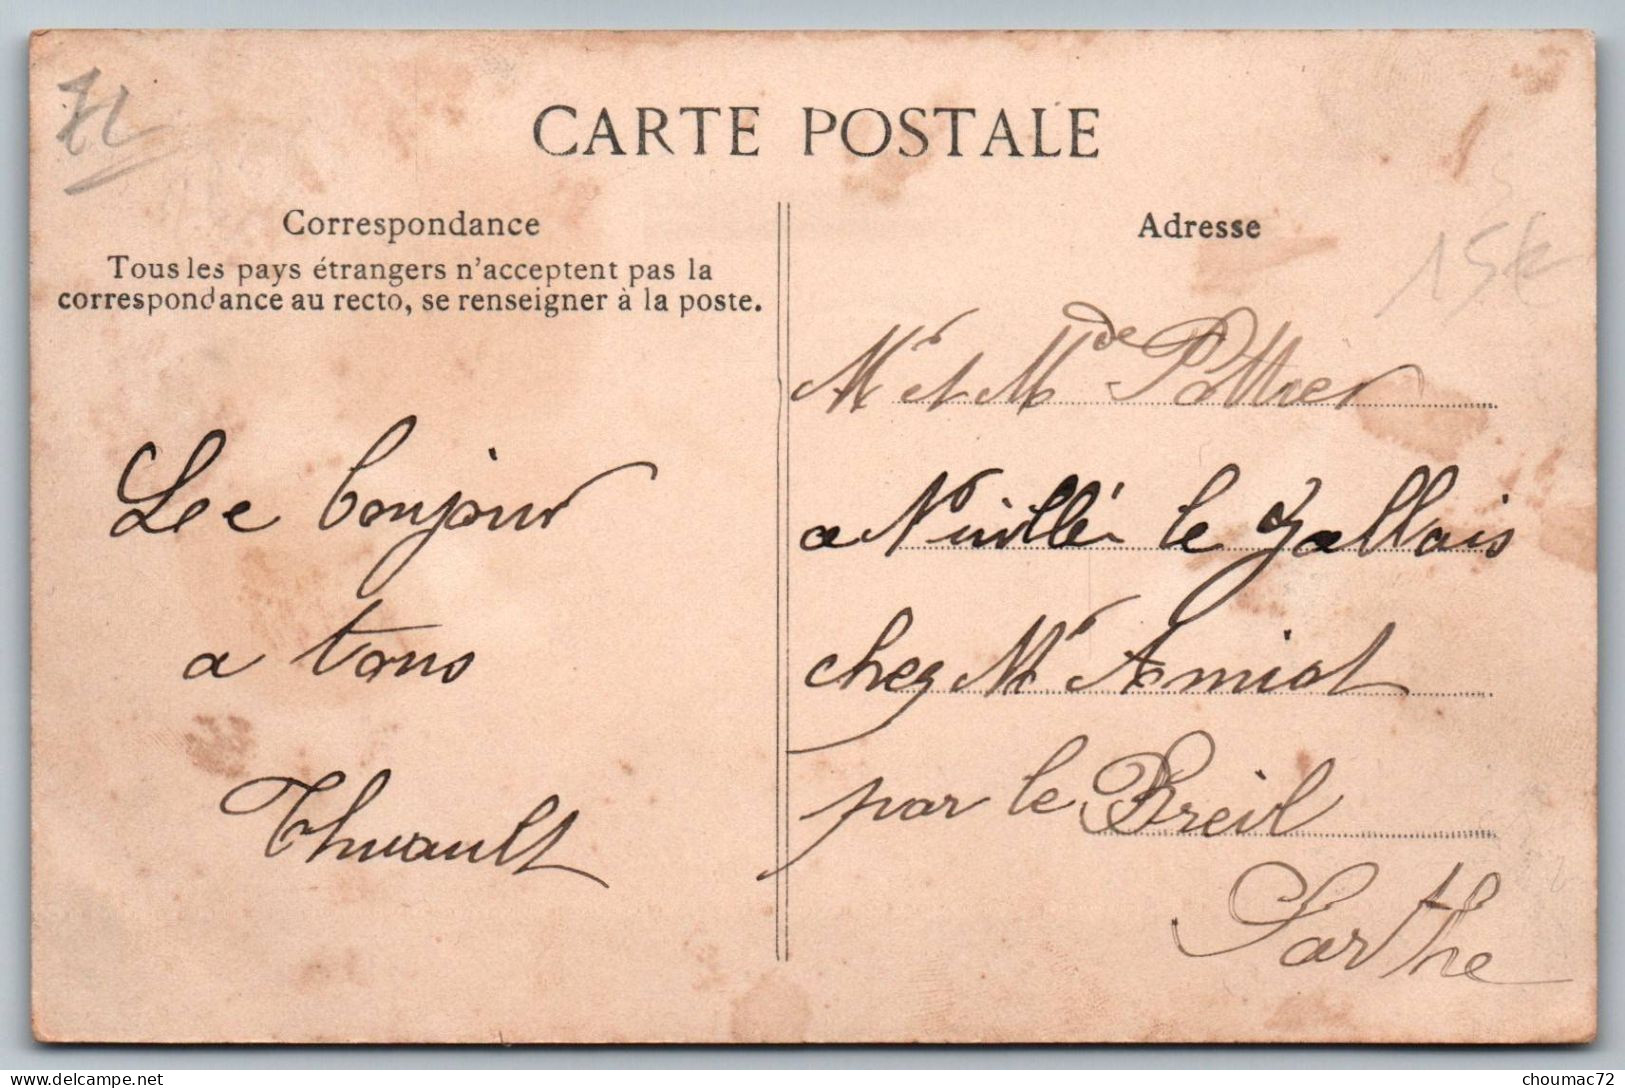 72
CARTE POSTALE
Correspondance
Tous les pays étrangers n'acceptent pas la
correspondance au recto, se renseigner à la poste.
Lee bonjour
a tous
Thuault
Adresse
15€
Mr et Mde Pottier
a Nuillé le Jallais
chez Mr Amiot
par le Breil
Sarthe
choumac72